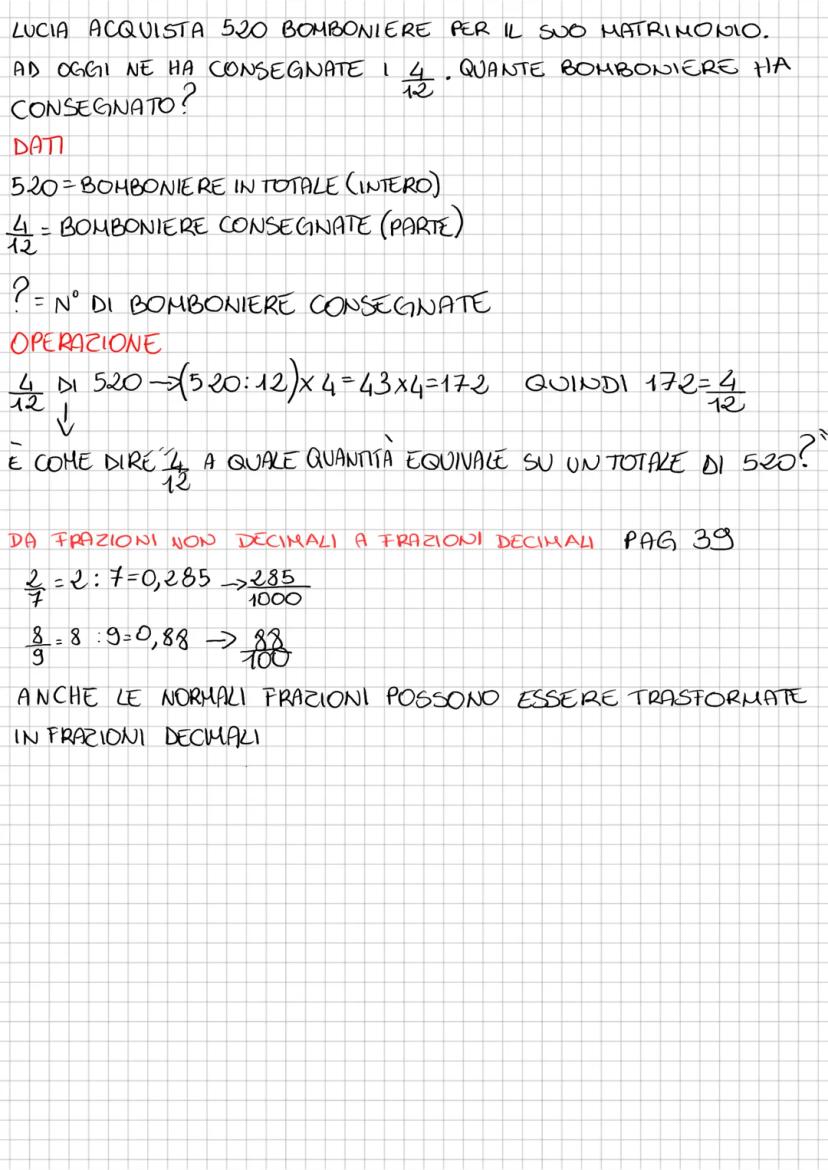 LUCIA ACQUISTA 520 BOMBONIERE PER IL SUO MATRIMONIO.
AD OGGI NE HA CONSEGNATE I 4/12. QUANTE BOMBONIERE HA
CONSEGNATO?
DATI
520=BOMBONIERE IN TOTALE (INTERO)
4/12 = BOMBONIERE CONSEGNATE (PARTE)
?=N° DI BOMBONIERE CONSEGNATE
OPERAZIONE
4/12 DI 520 →(520:12)×4=43×4=172 QUINDI 172=4/12
↓
È COME DIRE "4/12 A QUALE QUANTITÀ EQUIVALE SU UN TOTALE DI 520?"
DA FRAZIONI NON DECIMALI A FRAZIONI DECIMALI PAG 39
2/7 = 2:7=0,285 → 285/1000
8/9 = 8:9=0,88 → 88/100
ANCHE LE NORMALI FRAZIONI POSSONO ESSERE TRASFORMATE
IN FRAZIONI DECIMALI